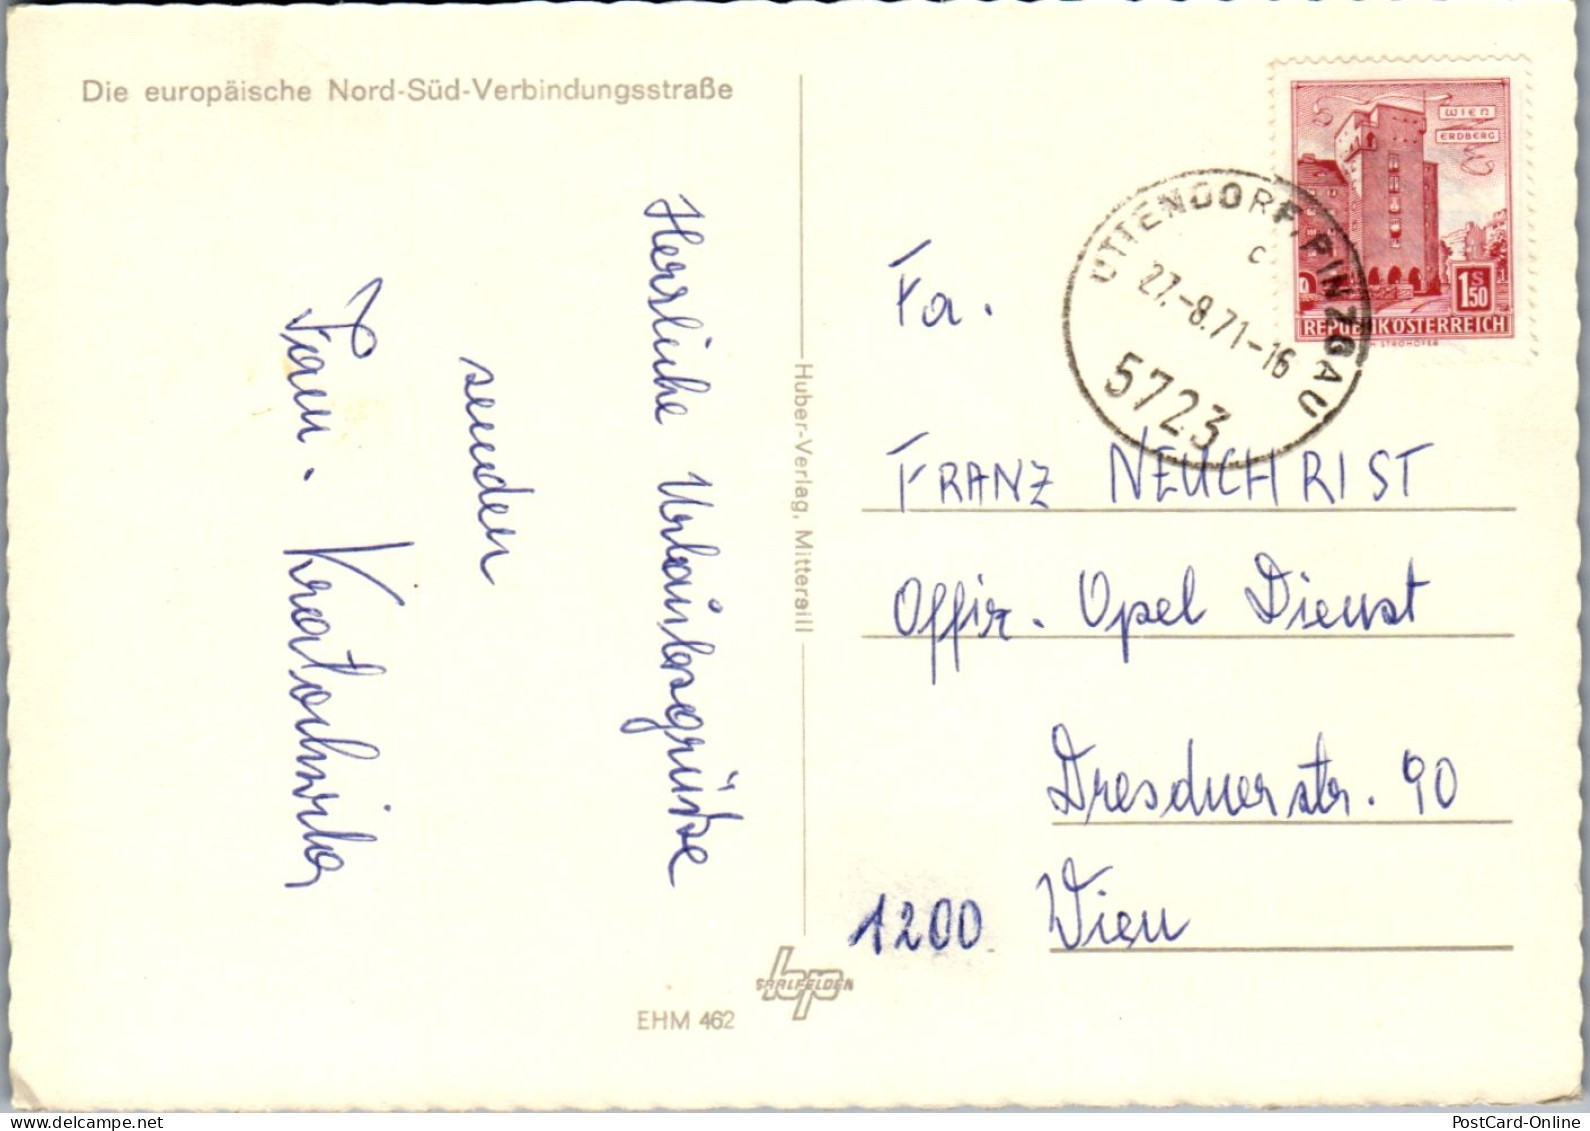 Die europäische Nord-Süd-Verbindungsstraße
Herrliche Urlaubsgrüße
senden
Fam. Kratochwila
Huber-Verlag, Mittersill
SAALFELDEN
EHM 462
WIEN
ERDBERG
1S50
REPUBLIK ÖSTERREICH
UTTENDORF, PINZGAU
c
27.-8.71-16
5723
Fa.
FRANZ NEUCHRIST
Offiz. Opel Dienst
Dresdnerstr. 90
1200 Wien
PostCard-Online